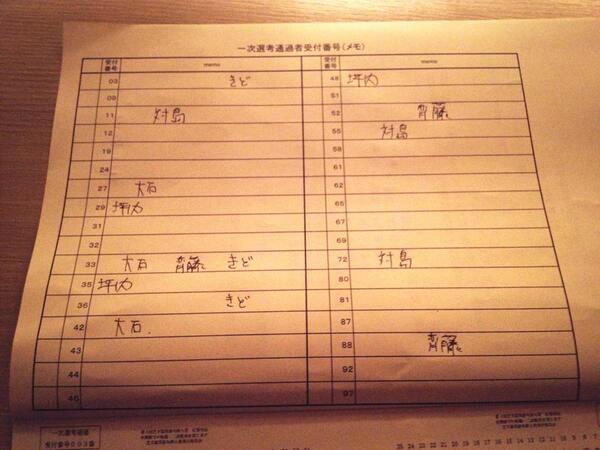 一次選考通過者受付番号(メモ)
受付番号 memo
03 きど
09
11 対島
12
19
24
27 大石
29 坪内
31
32
33 大石 齊藤 きど
35 坪内
36 きど
42 大石.
43
44
46
受付番号 memo
48 坪内
51
52 齊藤
55 対島
58
61
62
65
67
69
72 対島
80
81
87
88 齊藤
92
97